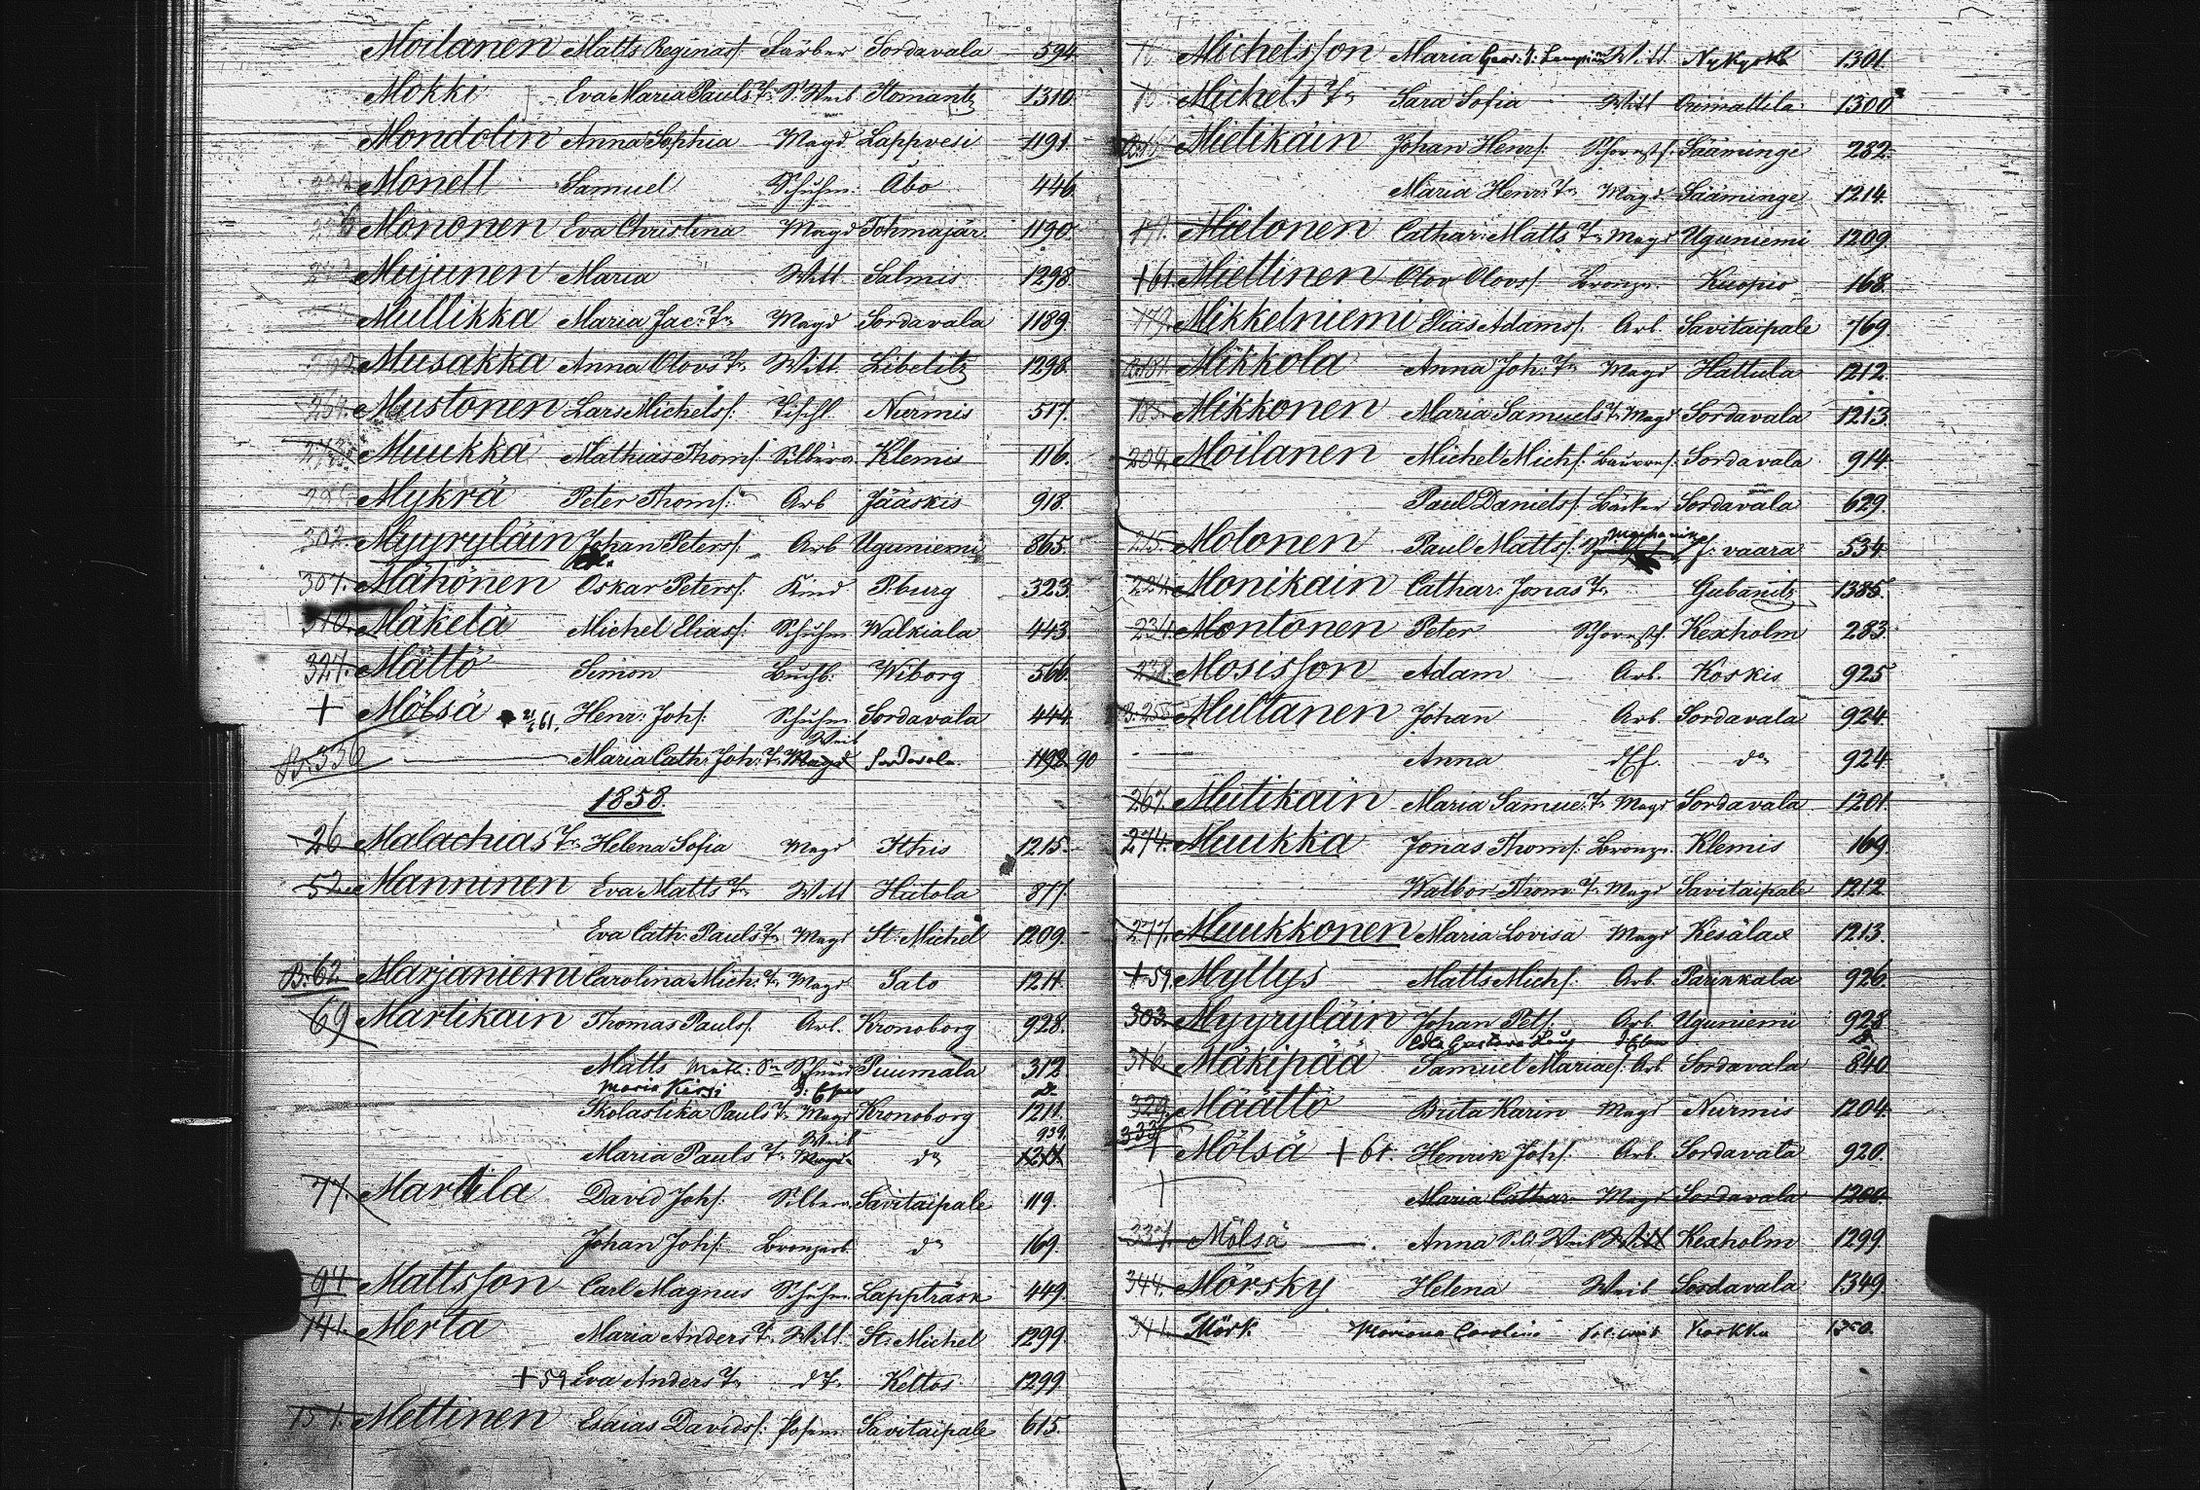 Moilanen Matts Reginas. Färber Sordavala 594
Mokki Eva Maria Pauls Tr. S. Weib Ilomantz 1310
Mondolin Anna Sophia Magd Lappvesi 1191
Monell Samuel Schuhm. Åbo 446
Mononen Eva Christina Magd Tohmajär. 1190
Mujunen Maria Witt. Salmis 1298
Mullikka Maria Jac: Tr. Magd Sordavala 1189
Musakka Anna Olovs Tr. Witt. Libelitz 1298
267. Mustonen Lars Michels. Tischl. Nurmis 517.
Muukka Mathias Thoms. Silbera. Klemis 116.
Mykrä Peter Thoms. Arb Jääskis 918.
302. Myyryläin Johan Peters. Arb Uguniemi 865.
307. Mähönen Oskar Peters. Kind P.burg 323
310. Mäkelä Michel Elias. Schuhm Walkiala 443
327. Mättö Simon Buchb. Wiborg 566.
+ Mölsä 61. Henr: Johs. Schuhm Sordavala 444
Weib
B. 336 Maria Cath: Joh: Tr. Magd Sordavala 1192 90
1858.
26 Malachias Tr. Helena Sofia Magd Itthis 1215.
52 Manninen Eva Matts Tr. Witt Hiitola 877.
Eva Cath: Pauls Tr. Magd St. Michel 1209.
B. 62 Marjaniemi Carolina Mich: Tr. Magd Jalo 1211
69 Martikain Thomas Pauls. Arb. Kronoborg 928.
Matts Math: Sn Schneid Puumala 312
Maria Kirsi
Skolastika Pauls Tr. Magd Kronoborg 1211.
Weib 939.
Maria Pauls Tr. Magd do 1211
77. Marttila David Johs. Silbera. Savitaipale 119.
Johan Johs. Bronzearb. do 169.
94 Mattsson Carl Magnus Schuhm Lappträsk 449.
141. Merta Maria Anders Tr. Witt. St. Michel 1299.
+59 Eva Anders Tr. Keltos 1299
151. Mettinen Esaias Davids. Posam. Savitaipale 615.
Michelsson Maria Witt. Nykyrka 1301.
Michels Tr. Sara Sofia Witt Orimattila 1300
Mietikäin Johan Henrs. Schornstf. Sääminge 282.
Maria Henrs Tr. Magd. Sääminge 1214.
Mielonen Cathar: Matts Tr. Magd Uguniemi 1209
+61. Miettinen Olov Olovs. Bronzr. Kuopio 168.
179. Mikkelniemi Elias Adams. Arb. Savitaipale 769.
B. 181. Mikkola Anna Joh: Tr. Magd Hattula 1212
185. Mikkonen Maria Samuels Tr. Magd Sordavala 1213.
204. Moilanen Michel Michs. Sordavala 914
Paul Daniels. Bäcker Sordavala 629.
215. Molonen Paul Matts. vaara 534
224. Monikain Cathar: Jonas Tr. Gubanitz 1385.
231. Montonen Peter Schornstf. Kexholm 283
238. Mosisson Adam Arb. Koskis 925
B. 255 Multanen Johan Arb. Sordavala 924
Anna do 924
267. Mutikain Maria Samue: Tr. Magd Sordavala 1201.
274. Muukka Jonas Thoms. Bronzr. Klemis 169
Walbor Thom: Tr. Magd Savitaipale 1212
277. Muukkonen Maria Lovisa Magd Kesälax 1213.
+59. Myllys Matts Michs. Arb. Parikkala 926.
303. Myyryläin Johan Pets. Arb. Uguniemi 928
316. Mäkipää Samuel Marias. Arb. Sordavala 840
329. Määttö Brita Karin Magd Nurmis 1204
333
+ Mölsä +61. Henrik Johs. Arb. Sordavala 920.
+ Maria Cathar. Magd Sordavala 1200.
337. Mölsä Anna Weib Witt Kexholm 1299.
344. Mörsky Helena Weib Sordavala 1349.
341. Mörk Mariana Carolina